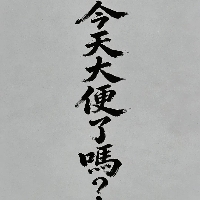 今天大便了嗎?